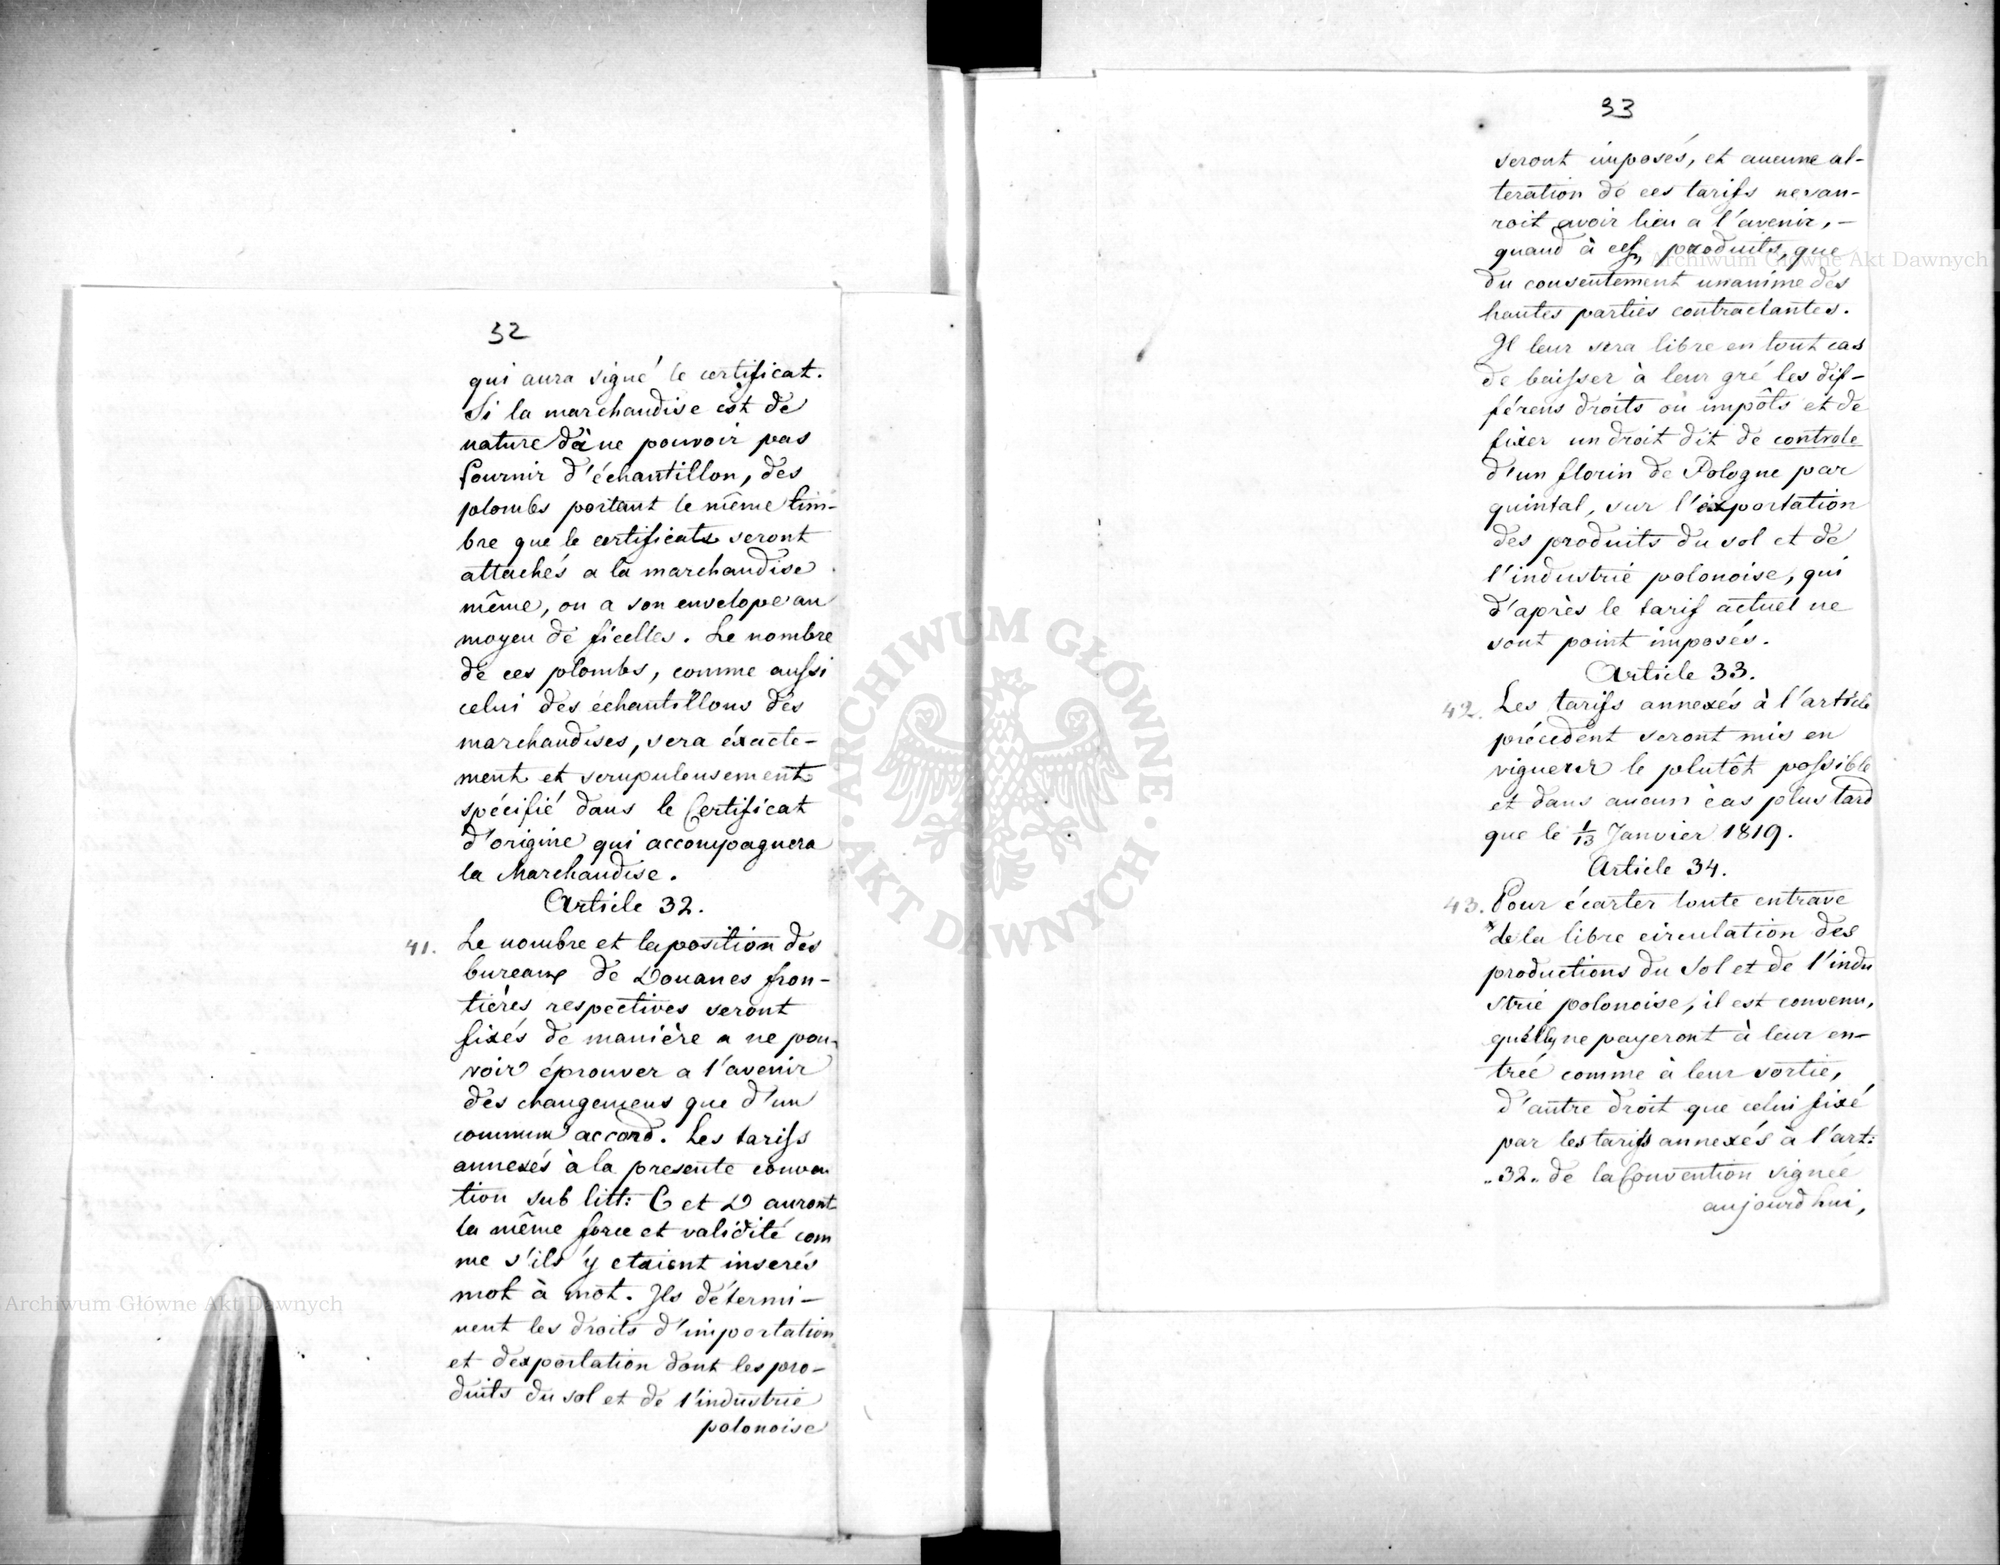 32
qui aura signé le certificat.
Si la marchandise est de
nature à ne pouvoir pas
fournir d'échantillon, des
plombs portant le même tim-
bre que le certificats seront
attachés a la marchandise
même, ou a son envelope au
moyen de ficelles. Le nombre
de ces plombs, comme aussi
celui des échantillons des
marchandises, sera éxacte-
ment et scrupuleusement
spécifié dans le Certificat
d'origine qui accompagnera
la Marchandise.
Article 32.
41. Le nombre et la position des
bureaux de Douanes fron-
tières respectives seront
fixés de manière a ne pou-
voir éprouver a l'avenir
des changemens que d'un
commun accord. Les tarifs
annexés à la presente conven
tion sub litt: C et D auront
la même force et validité com
me s'ils y etaient inserés
mot à mot. Ils détermi-
nent les droits d'importation
et d'exportation dont les pro-
duits du sol et de l'industrie
polonoise
33
seront imposés, et aucune al-
teration de ces tarifs ne sau-
roit avoir lieu a l'avenir, -
quand à ces produits, que
du consentement unanime des
hautes parties contractantes.
Il leur sera libre en tout cas
de baisser à leur gré les dif-
férens droits où impôts et de
fixer un droit dit de controle
d'un florin de Pologne par
quintal, sur l'exportation
des produits du sol et de
l'industrie polonoise, qui
d'après le tarif actuel ne
sont point imposés.
Article 33.
42. Les tarifs annexés à l'article
précédent seront mis en
vigueur le plutôt possible
et dans aucun cas plus tard
que le 1/13 Janvier 1819.
Article 34.
43. Pour écarter toute entrave
de la libre circulation des
productions du Sol et de l'indu
strie polonoise, il est convenu,
qu'elles ne payeront à leur en-
trée comme à leur sortie,
d'autre droit que celui fixé
par les tarifs annexés à l'art:
„32„ de la Convention signée
aujourd'hui,
Archiwum Główne Akt Dawnych
Archiwum Główne Akt Dawnych
ARCHIWUM GŁÓWNE · AKT DAWNYCH ·